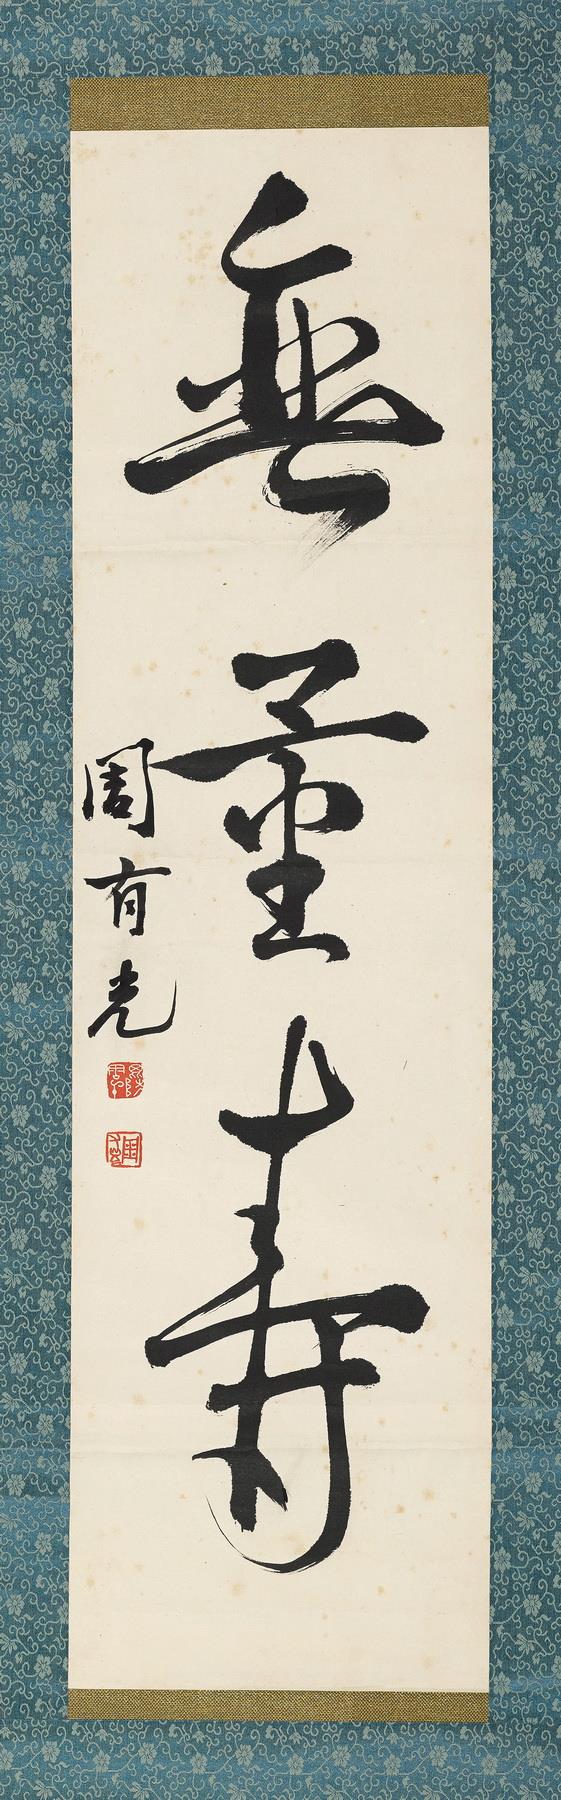 無量壽
周有光